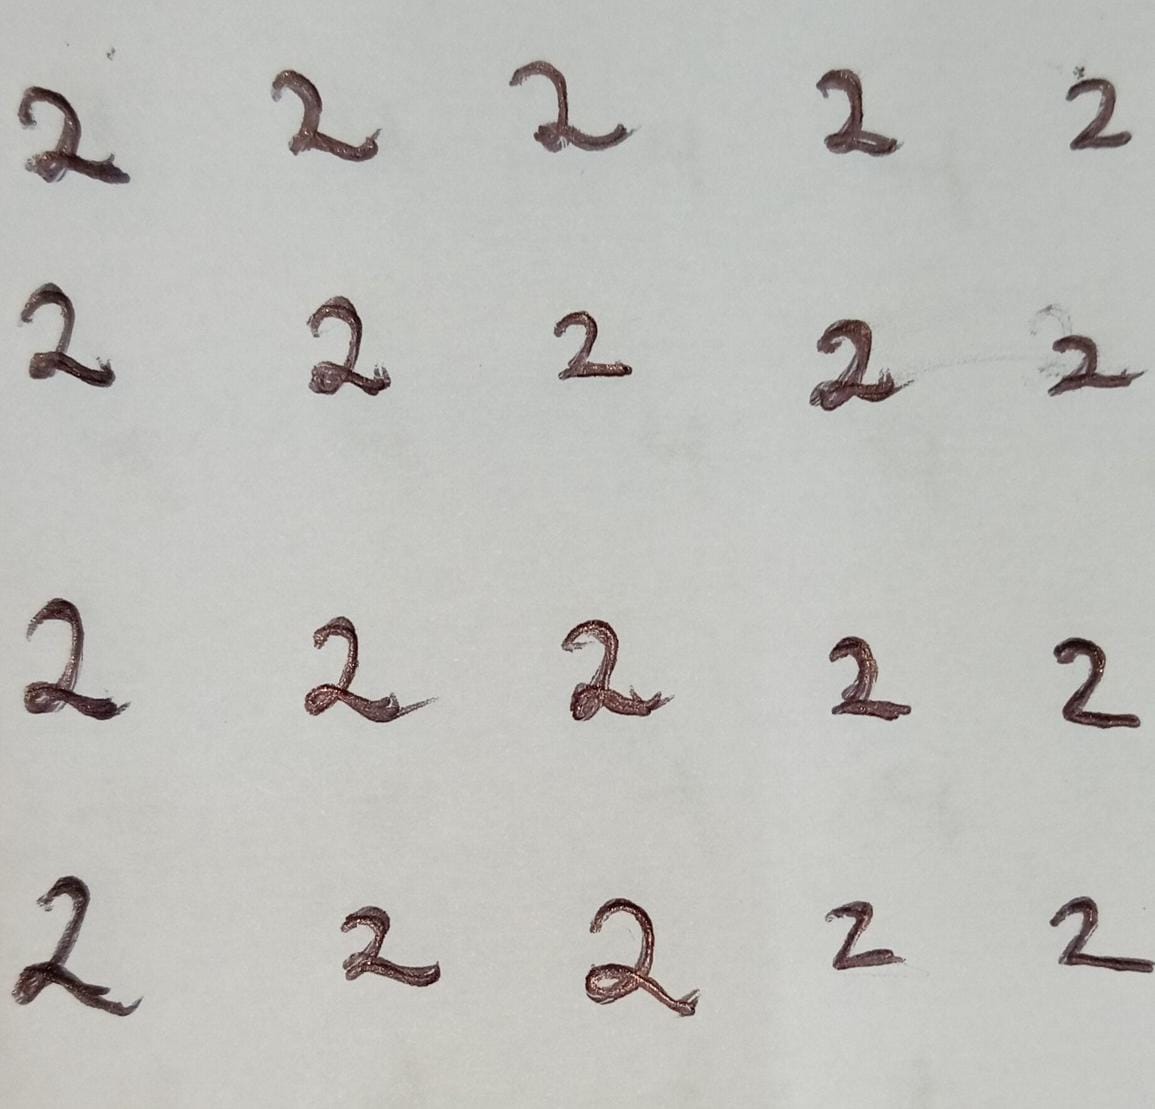 2 2 2 2 2
2 2 2 2 2
2 2 2 2 2
2 2 2 2 2